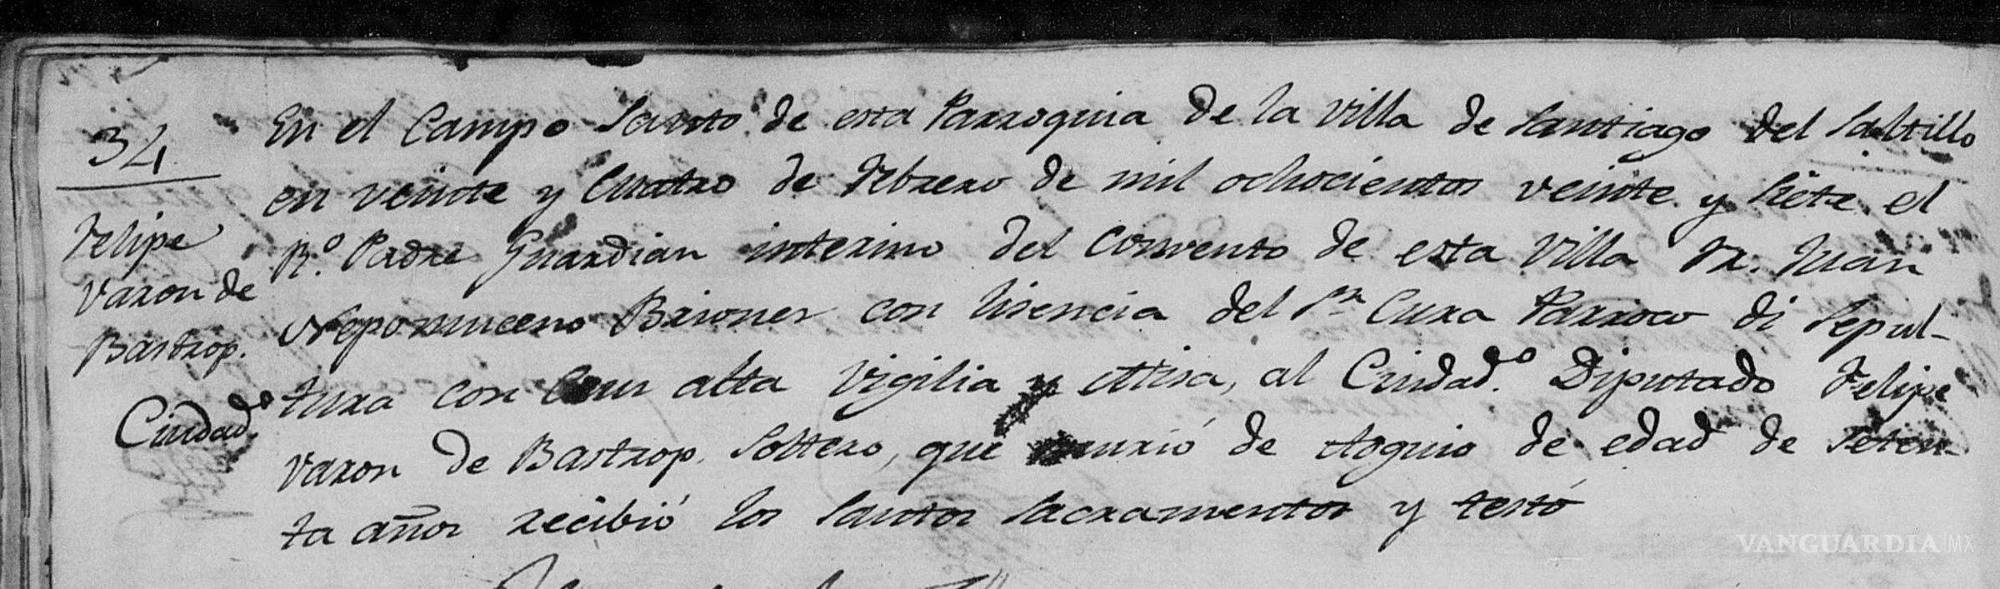 34
Felipe
Varon de
Bastrop.
Ciudadº.
En el Campo Santo de esta Parroquia de la Villa de Santiago del Saltillo
en veinte y Cuatro de Febrero de mil ochocientos veinte y siete el
Rº. Padre Guardian interino del Convento de esta Villa Fr. Juan
Nepomuceno Briones con lisencia del Sr Cura Parroco di Sepul-
tura con Crus alta Vigilia y Misa, al Ciudadº. Diputado Felipe
Varon de Bastrop. Soltero, que murió de de edad de Seten-
ta años recibió los Santos Sacramentos y testó
VANGUARDIA|MX